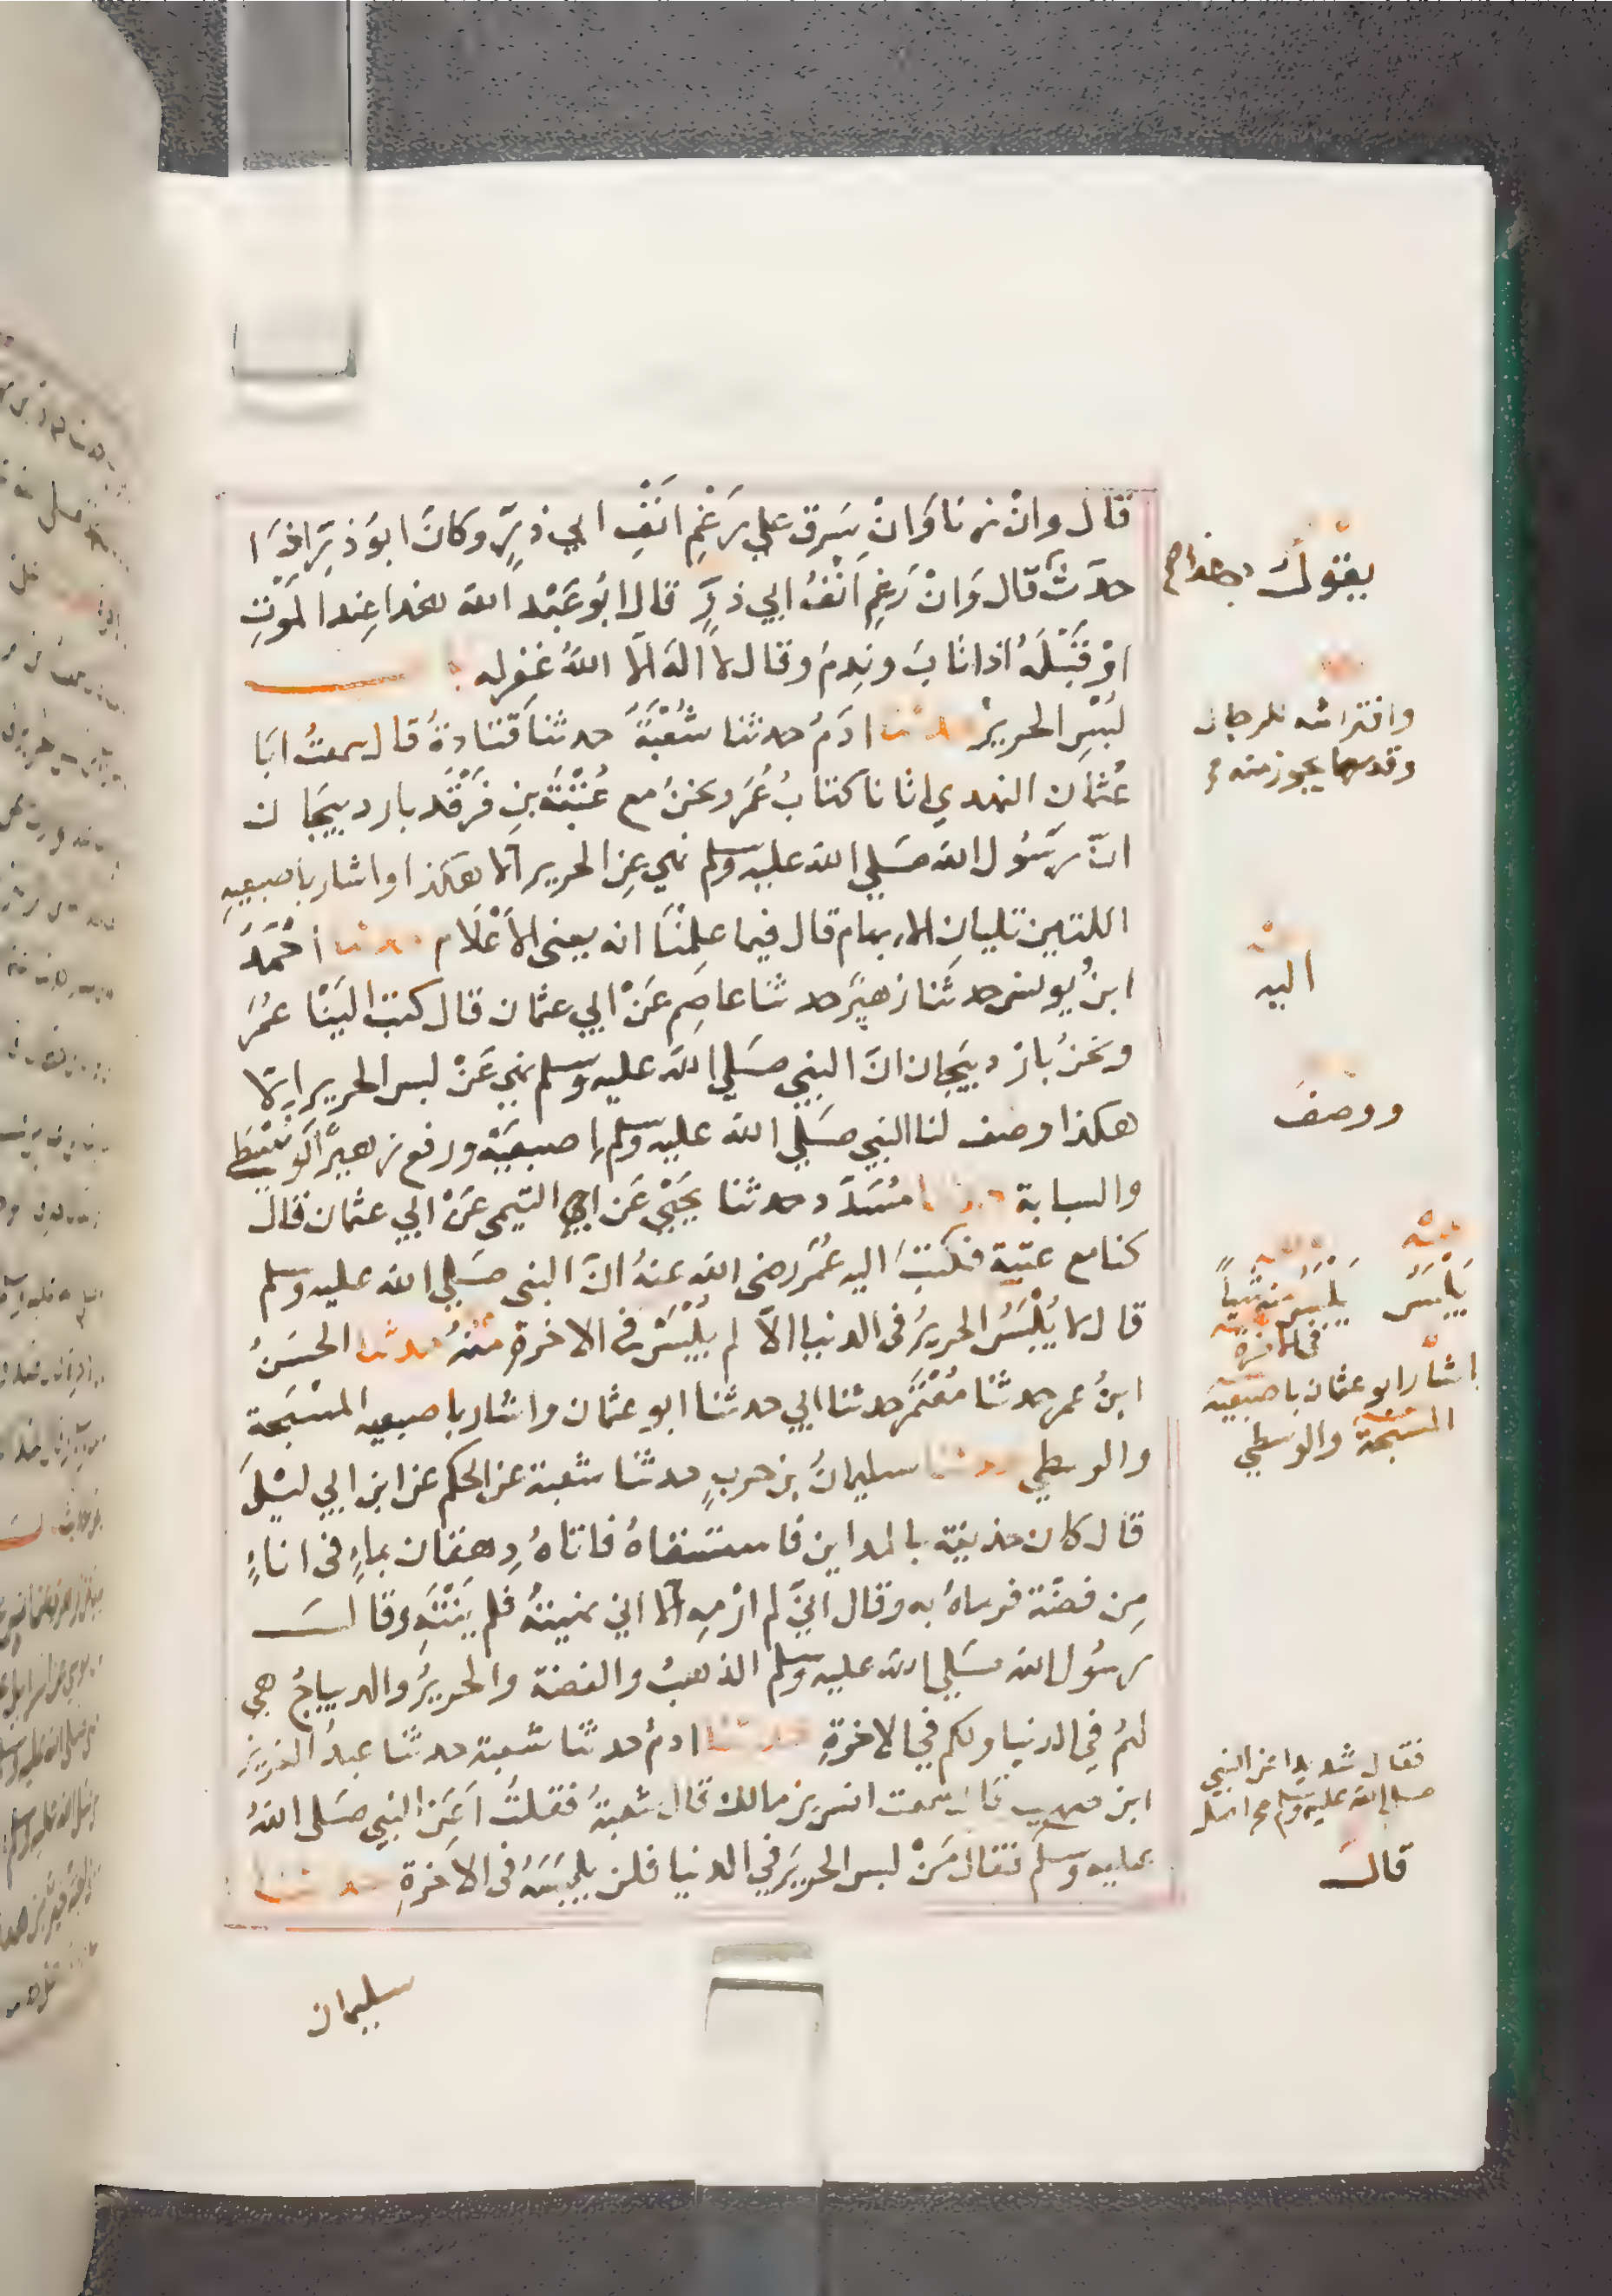 قَالَ وانْ زنَا وَانْ سَرق علي رَغْمِ انَفِ ابي ذرٍّ وكانَ ابوَ ذرٍّ اذَا
حدَثَ قال وَانْ رَغِمِ اَنْفُ ابي ذرٍّ قال ابُو عَبْد الله هذا عِندا لموَتِ
اوْ قَبْلَهُ اذا تابَ ونِدمُ وقال لا اله الا اللهُ غفرله
لبُسِ الحريرْ حدثنا ادَمُ حدثنا شُعْبَةَ حدثنا قَتنادةُ قال سمعتُ ابَا
عُثمان النهدي اتانا كتابُ عُمَرَ ونحنُ مع عُتْبَةَ بنِ فَرْقَد باردبيَجان
انّ رسَوُل الله صَلي الله عليه وسلم نهي عِن الحرير الا هكذا واشار باصبعيهِ
اللتين تليانِ الابهام قال فيما علِمْنَا انه يعني الاَعْلَام حدثنا احْمَدَ
ابنُ يونس حدثنا زهيَر حدثنا عاصِم عَنْ ابي عثمان قال كتبَ اليَنْا عمُرَ
ونحَنُ باذربيَجان انَ النبي صَلي الله عليه وسلم نهي عَنْ لبس الحرير اِلا
هكذا وصَف لنا النبي صَلي الله عليه وسلم اصبعَيْه ورفع زهيرٌ الوسْطَي
والسبابة حدثنا مُسَدَّد حدثنا يحَيْي عَن التيمي عَنْ ابي عثمان قالَ
كنا مع عتبة فكَتبَ اليه عُمَر رضى الله عنهُ انَ النبى صَلي الله عليه وسلم
قال لا يُلْبَسُ الحريرُ فى الدنيا الاّ لم يُلْبَسْ فى الاخرةِ منْهُ حدثنا الحسَنُ
ابنُ عمر حدثنا مُعْتَمَر حدثنا ابي حدثنا ابو عثمان واشار باصبعيه المسْبَحة
والوسطي حدثنا سليمانُ بن حربٍ حدثنا شعبة عن الحكم عن ابن ابي ليْليَ
قال كان حذيفة بالمداين فاستسقاهُ فاتاهُ دِهقان بماءٍ فى اناءٍ
مِن فضّة فرماهُ به وقال انيَّ لم ارْمِه الا اني نهيتهُ فلم ينَتْهَِ وقالَ
رسُول الله صَلي الله عليه وسلم الذهبُ والفضة والحريُر والديباجُ هي
لهُم فِي الدنيا ولكم في الاخرةِ حدثنا ادمُ حدثنا شعبة حدثنا عبدُ العزيز
ابن صهيب قال سمعت انس بن مالك قال شعبةُ فقلتُ اَعَنِ النبي صَلى اللهُ
عليه وسلم فقال مَنْ لبس الحريَر في الدنيا فلن يلبَسَهُ فى الاخَرةِ حدثنا
سليمان
يقوُلَ
وافتراشه للرجال
وقدر ما يجوز منه
اليه
ووصَفَ
يَلْبَسُ
اشار ابو عثمان باصبعيه
المسبحة والوسطي
فقال شديدا عن النبي
صلي الله عليه وسلم
قالَ